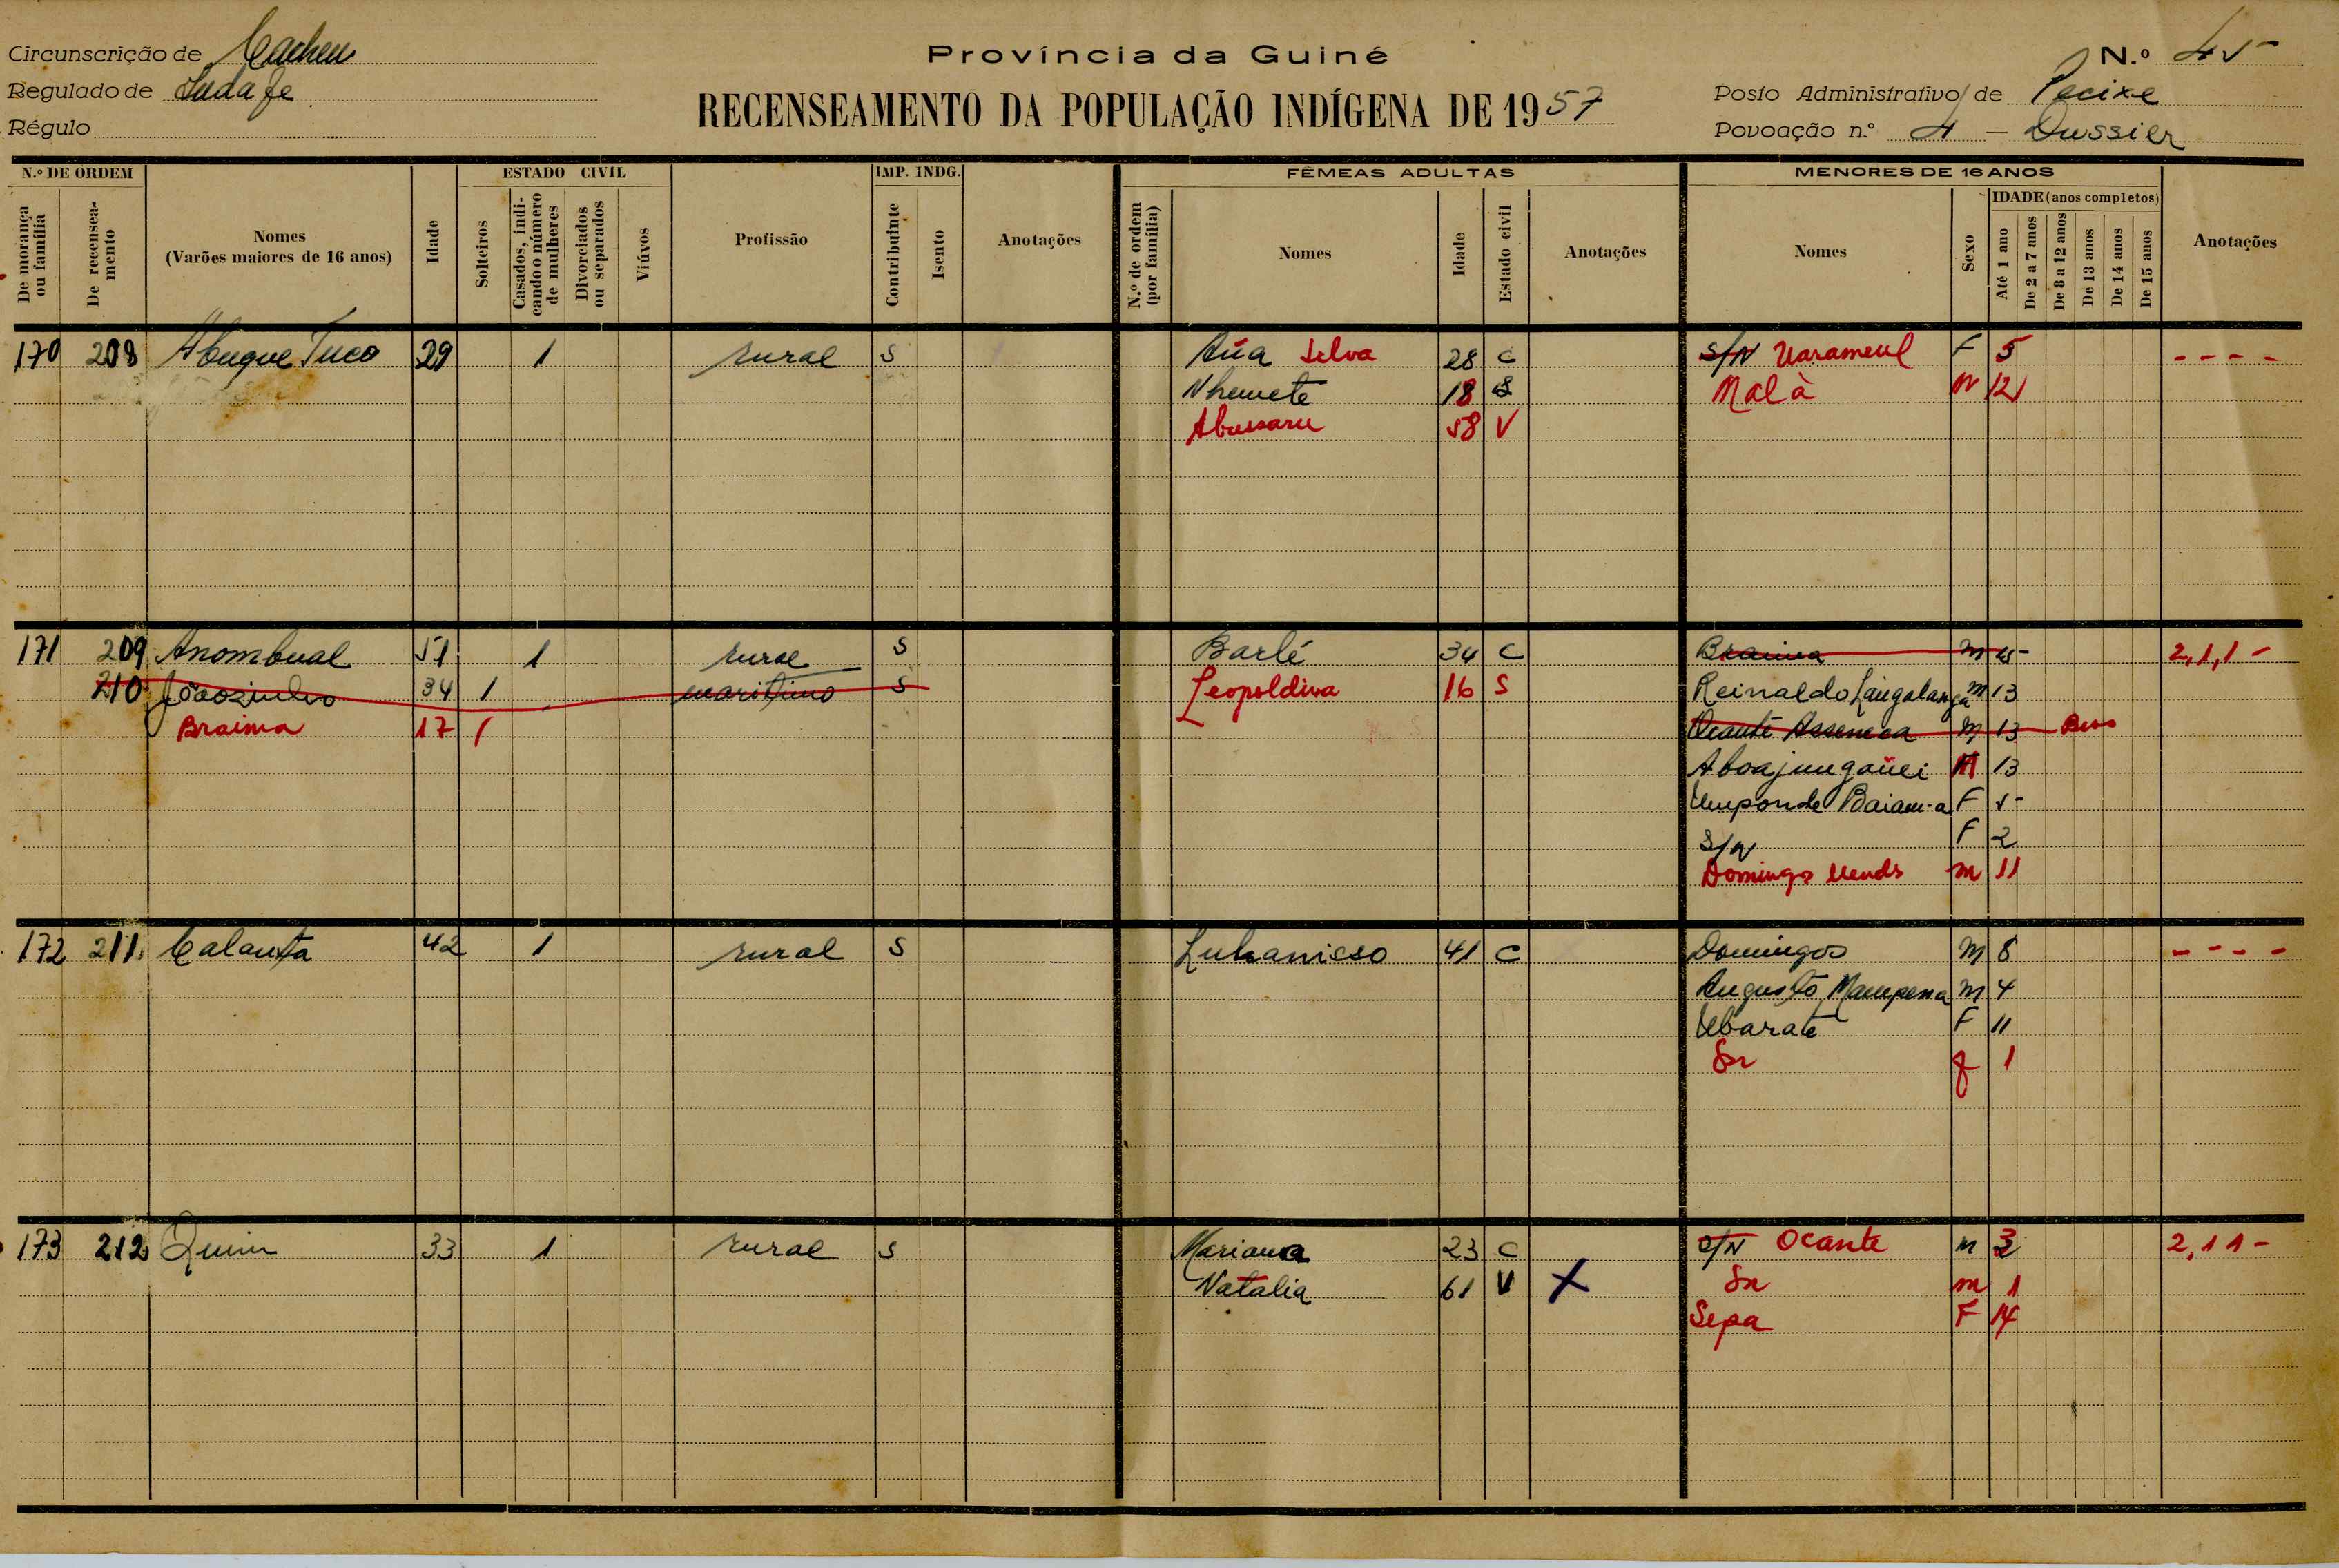 Circunscrição de Cacheu
Província da Guiné
N.º 45
Regulado de
Posto Administrativo de Pecixe
Régulo
RECENSEAMENTO DA POPULAÇÃO INDÍGENA DE 1957
Povoação n.º 4 — Dussier
N.º DE ORDEM
De morança ou família
De recenseamento
Nomes
(Varões maiores de 16 anos)
Idade
ESTADO CIVIL
Solteiros
Casados, indicando o número de mulheres
Divorciados ou separados
Viúvos
Profissão
IMP. INDG.
Contribuinte
Isento
Anotações
FÊMEAS ADULTAS
N.º de ordem (por família)
Nomes
Idade
Estado civil
Anotações
MENORES DE 16 ANOS
Nomes
Sexo
IDADE (anos completos)
Até 1 ano
De 2 a 7 anos
De 8 a 12 anos
De 13 anos
De 14 anos
De 15 anos
Anotações
170 208 Abuque Tuco 29 1 rural S Aúa Silva 28 C S/N F 5 - - - -
18 S Malà M 12
58 V
171 209 Anombual 51 1 rural S Barlé 34 C Braima M 2,1,1 -
210 Joãozinho 34 1 maritimo S Leopoldina 16 S Reinaldo M 13
Braima 17 1 M 13
M 13
F 5
S/N F 2
Domingo M 11
172 211 Calanta 42 1 rural S 41 C Domingos M 8 - - - -
Augusto M 4
Ubaraté F 11
Sn f 1
173 212 Quim 33 1 rural S Mariana 23 C S/N Ocante M 3 2,1 1 -
Natalia 61 V X Sn m 1
Sepa F 14